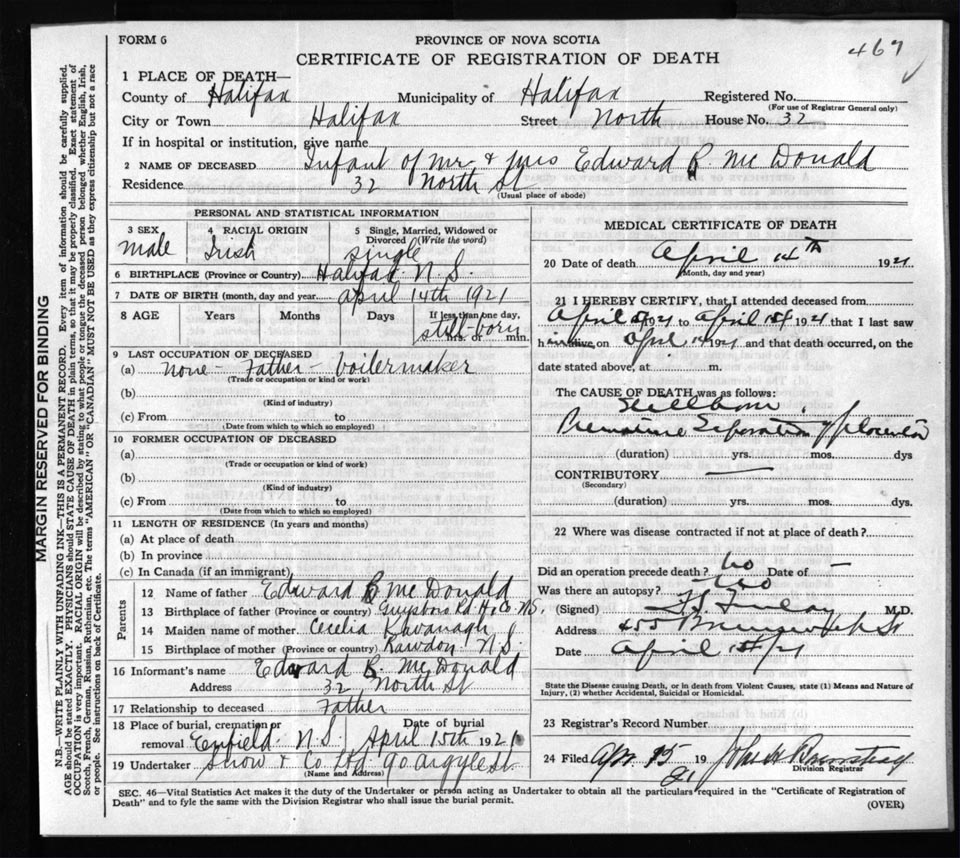 FORM 6
PROVINCE OF NOVA SCOTIA
CERTIFICATE OF REGISTRATION OF DEATH
467
1 PLACE OF DEATH—
County of Halifax Municipality of Halifax Registered No.
(For use of Registrar General only)
City or Town Halifax Street North House No. 32
If in hospital or institution, give name
2 NAME OF DECEASED Infant of Mr. & Mrs Edward B. McDonald
Residence 32 North St
(Usual place of abode)
PERSONAL AND STATISTICAL INFORMATION
3 SEX 4 RACIAL ORIGIN 5 Single, Married, Widowed or Divorced (Write the word)
male Irish single
6 BIRTHPLACE (Province or Country) Halifax N. S.
7 DATE OF BIRTH (month, day and year) april 14th 1921
8 AGE Years Months Days If less than one day,
still-born
hrs. or min.
9 LAST OCCUPATION OF DECEASED
(a) none - Father - boilermaker
(Trade or occupation or kind of work)
(b)
(Kind of industry)
(c) From to
(Date from which to which so employed)
10 FORMER OCCUPATION OF DECEASED
(a)
(Trade or occupation or kind of work)
(b)
(Kind of industry)
(c) From to
(Date from which to which so employed)
11 LENGTH OF RESIDENCE (In years and months)
(a) At place of death
(b) In province
(c) In Canada (if an immigrant)
Parents
12 Name of father Edward B McDonald
13 Birthplace of father (Province or country) Guysboro Rd Hx Co. N.S.
14 Maiden name of mother Cecelia Kavanagh
15 Birthplace of mother (Province or country) Rawdon N S.
16 Informant's name Edward B. McDonald
Address 32 North St
17 Relationship to deceased Father
18 Place of burial, cremation or removal Enfield N.S. Date of burial April 15th 1921
19 Undertaker Snow & Co Ltd 90 Argyle St
(Name and Address)
MEDICAL CERTIFICATE OF DEATH
20 Date of death April 14TH 1921
(Month, day and year)
21 I HEREBY CERTIFY, that I attended deceased from
April 1921 to April 1921 that I last saw
h alive, on April 14 1921 and that death occurred, on the
date stated above, at m.
The CAUSE OF DEATH was as follows:
Stillborn
Premature Separation of placenta
(duration) yrs. mos. dys
CONTRIBUTORY
(Secondary)
(duration) yrs. mos. dys.
22 Where was disease contracted if not at place of death?
Did an operation precede death? No Date of —
Was there an autopsy? No
(Signed) Finlay M.D.
Address 455 Brunswick St
Date April /21
State the Disease causing Death, or in death from Violent Causes, state (1) Means and Nature of
Injury, (2) whether Accidental, Suicidal or Homicidal.
23 Registrar's Record Number
24 Filed Apr. 15 1921 John A
Division Registrar
SEC. 46—Vital Statistics Act makes it the duty of the Undertaker or person acting as Undertaker to obtain all the particulars required in the "Certificate of Registration of
Death" and to fyle the same with the Division Registrar who shall issue the burial permit.
(OVER)
MARGIN RESERVED FOR BINDING
N.B.—WRITE PLAINLY WITH UNFADING INK—THIS IS A PERMANENT RECORD. Every item of information should be carefully supplied.
AGE should be stated EXACTLY. PHYSICIANS should STATE CAUSE OF DEATH in plain terms, so that it may be properly classified. Exact statement of
OCCUPATION is very important. RACIAL ORIGIN will be described by stating to what people or tongue the deceased person belonged whether English, Irish,
Scotch, French, German, Russian, Ruthenian, etc. The terms "AMERICAN" OR "CANADIAN" MUST NOT BE USED as they express citizenship but not a race
or people. See instructions on back of Certificate.